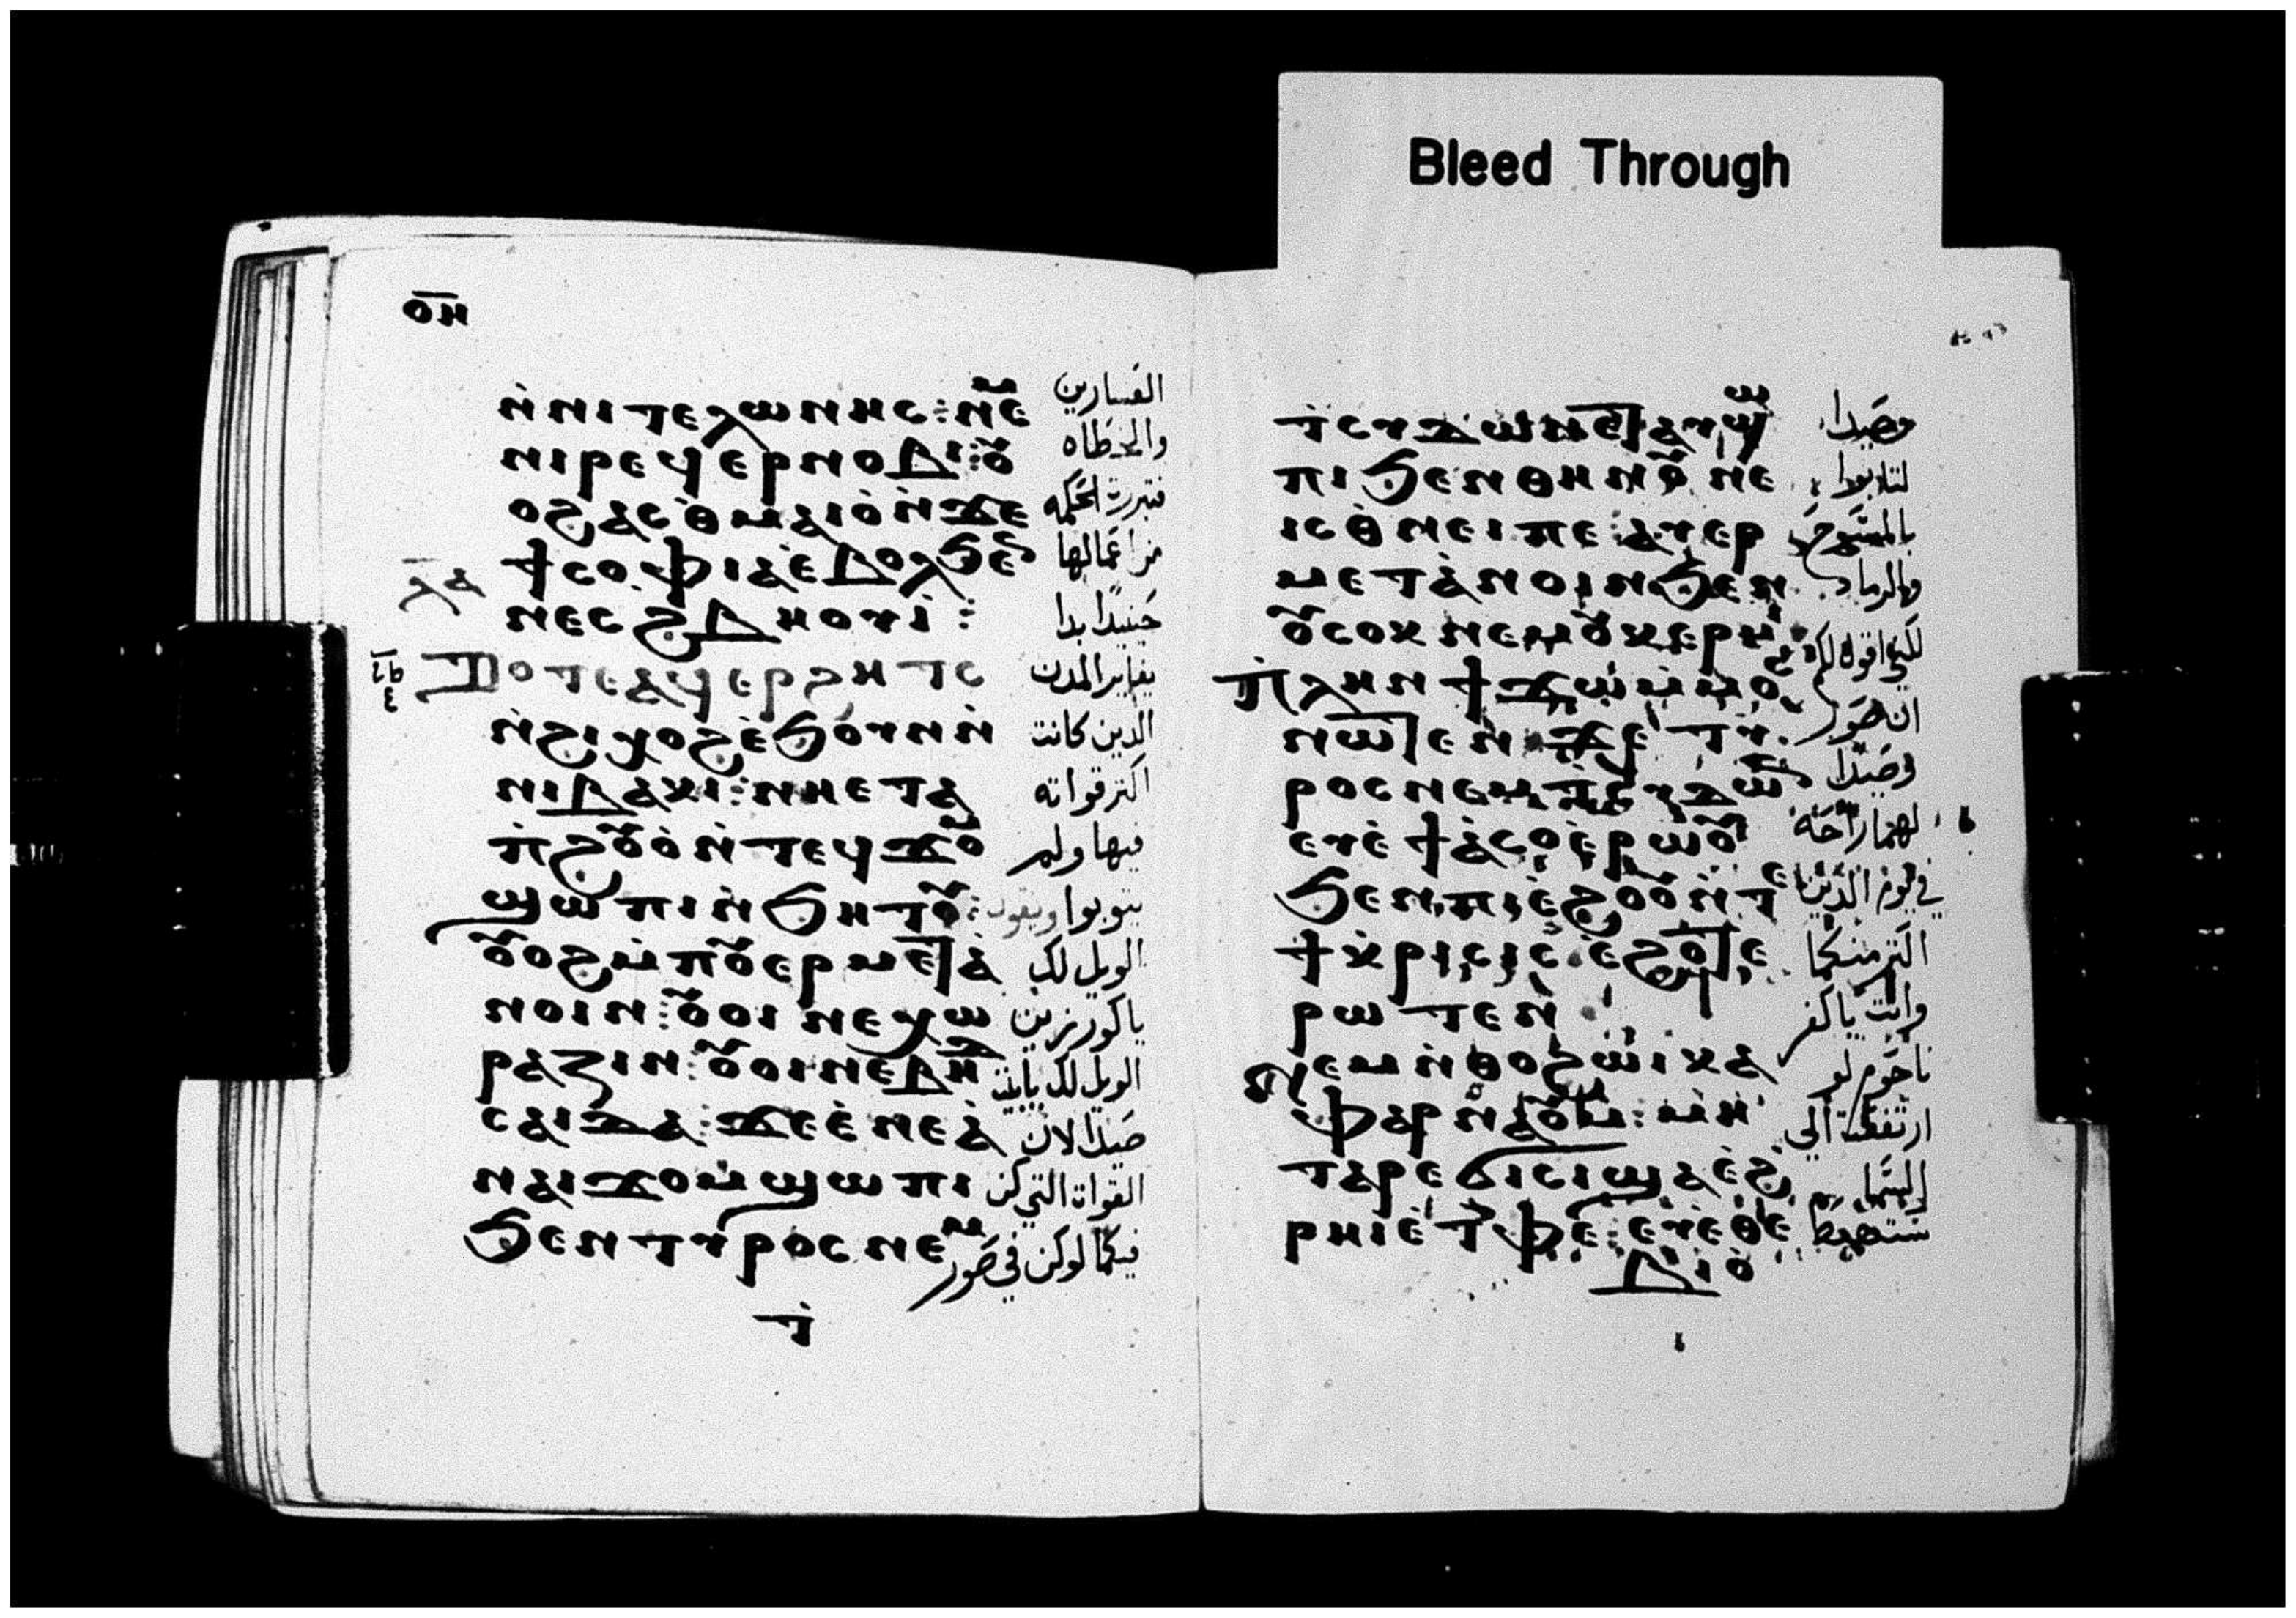 Bleed Through
ⲟ̅ⲏ
ⲛ̀ⲛⲓⲧⲉⲗⲱⲛⲏⲥ: ⲛⲉⲙ
ⲛⲓⲣⲉϥⲉⲣⲛⲟⲃⲓ: ⲟⲩ
ⲟϩⲁⲥⲑⲙⲁⲓⲟ̀ⲛ̀ϫⲉ
ϯⲥⲟⲫⲓⲁⲉ̀ⲃⲟⲗϧⲉⲛ
ⲛⲉⲥϩⲃⲏⲟⲩⲓ̀:
ⲗⲁ
ⲧⲟⲧⲉⲁϥⲉⲣϩⲏⲧⲥ
ⲛ̀ϩⲓϣⲟϩⲉ̀ϧⲟⲩⲛⲛ̀
ⲛⲓⲃⲁⲕⲓ: ⲛⲏⲉⲧⲁ
ⲡ̀ϩⲟⲩⲟ̀ⲛ̀ⲧⲉϥϫⲟⲙ
ϣⲱⲡⲓⲛ̀ϧⲏⲧⲟⲩ:
ⲟⲩⲟϩⲙ̀ⲡⲟⲩⲉⲣⲙⲉⲧⲁ̀
ⲛⲟⲓⲛ: ⲟⲩⲟⲓⲛⲉⲭⲱ
ⲣⲁⲍⲓⲛ: ⲟⲩⲟⲓⲛⲉⲃⲏ
ⲥⲁⲓⲇⲁ: ϫⲉⲉ̀ⲛⲉⲁ̀
ⲛⲁⲓϫⲟⲙϣⲱⲡⲓ
ϧⲉⲛⲧⲩⲣⲟⲥⲛⲉⲙ
ⲧ̀
العشارين
والخطاه
فتبررة الحكمه
من اعمالها
حينيدا بدا
يعاير المدن
الدين كانت
اكتر قواته
فيها ولم
يتوبوا ويقول
الويل لك
يا كورزين
الويل لك يا بيت
صيدا لان
القواة التي كن
فيكما لو كن في صور
ⲧ̀ⲥⲩⲇⲱⲛⲉ̅ⲁⲩϣ
ⲡⲓϧⲉⲛⲑⲏⲛⲟⲩ ⲛⲉ
ⲓⲥⲑ̀ⲛⲉⲓⲡⲉ: ⲁⲩⲉⲣ
ⲙⲉⲧⲁ̀ⲛⲟⲓⲛϧⲉⲛ
ⲟⲩⲥⲟⲕⲛⲉⲙⲟⲩⲕⲉⲣⲙⲓ
ⲡ̀ⲗⲏⲛϯϫⲱⲙ̀ⲙⲟ
ⲛⲱⲧⲉⲛ ϫⲉ ⲧⲩ
ⲣⲟⲥⲛⲉⲙⲧ̀ⲥⲩⲇⲱⲛ
ⲉⲩⲉ̀ϯⲁ̀ⲥⲟⲉ̀ⲣⲱⲟⲩ
ϧⲉⲛⲡⲓⲉ̀ϩⲟⲟⲩⲛ̀ⲧⲉ
ϯⲕ̀ⲣⲓⲥⲓⲥ ⲉ̀ϩⲟⲧⲉ
ⲣⲱⲧⲉⲛ
ⲛⲉⲙⲛ̀ⲑⲟϩⲱⲓⲕⲁ
ⲫⲁⲣⲛⲁⲟⲩⲙ: ⲙⲏ
ⲧⲁⲣⲉϭⲓⲥⲓϣⲁⲉ̀ϩ
ⲣⲏⲓⲉ̀ⲧ̀ⲫⲉ: ⲉⲩⲉ̀ⲑⲉ
ⲃⲓⲟ̀
وصيدا
لتابوا
بالمسوح
والرماد
لكني اقول لكم
ان صور
وصيدا
لهما راحه
في يوم الدين
اكتر منكما
وانت يا كفر
ناحوم لو
ارتفعت الي
السما
ستهبط